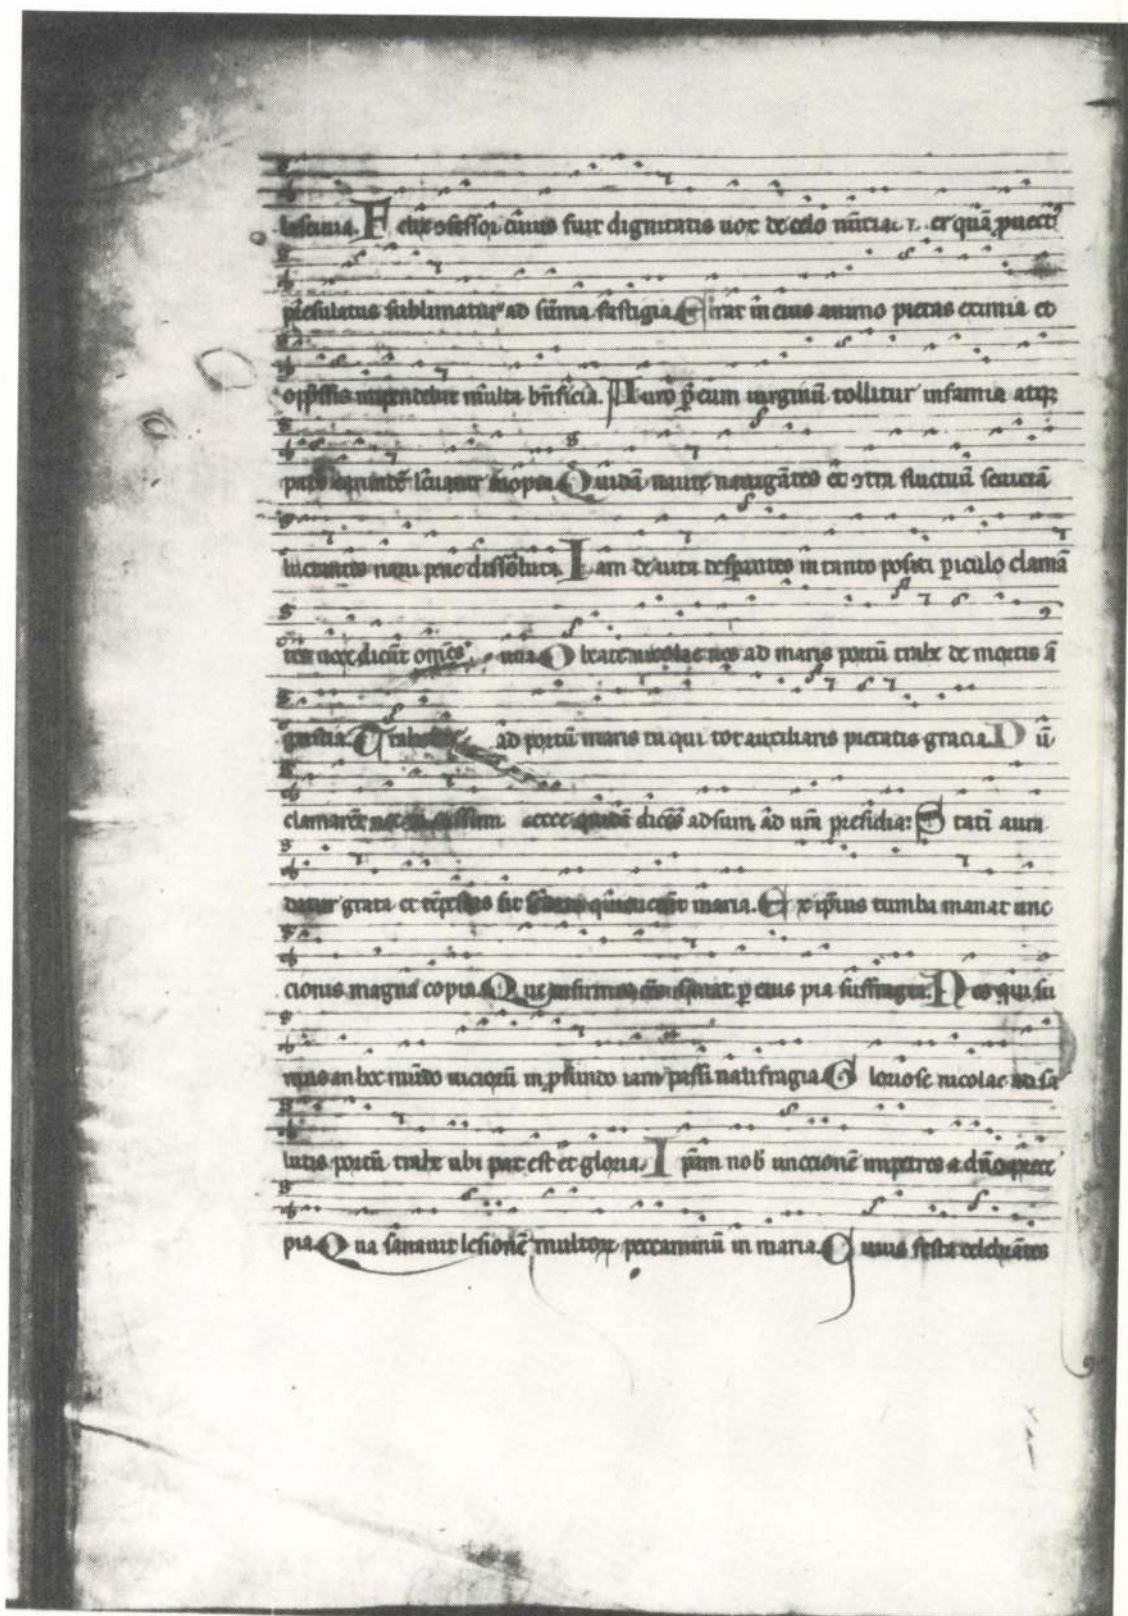 lasciuia. Felix ↄfessor cuius fuit dignitatis uox de celo nūcia ⁊ . er quā ꝓuect9
presulatus sublimatur ad sūma fastigia Erat in eius animo pietas eximia et
opp̄ssis impendebat multa bn̄ficia. Auro ꝑ eum uirginū tollitur infamia atqꝫ
patris earundē leuatur inopia Quidā naute nauigātes et ↄtra fluctuū seuiciā
luctantes naui pene dissoluta. Iam de uita desꝑantes in tanto positi ꝑiculo clamā
tes uoce dicūt om̄es una O beate nicolae nos ad maris portū trahe de mortis ā
gustia. Trahe ad portū maris tu qui tot auxiliaris pietatis gracia. Dū
clamarēt nec incassum ecce quidā dicēs adsum ad ur̄a presidia: Statī aura
datur grata et tēpestas fit sedata quieuerūt maria. Ex ip̄ius tumba manat unc
cionis magna copia Que infirmos om̄s sanat ꝑ eius pia suffragia. Nos qui su
mus in hoc mūdo uiciorū in ꝓfundo iam passi naufragia Gloriose nicolae ad sa
lutis portū trahe ubi pax est et gloria. Ipsam nob̄ unctionē impetres a dn̄o prece
pia Qua sanauit lesionē multoꝝ peccaminū in maria. Cuius festa celebrātes